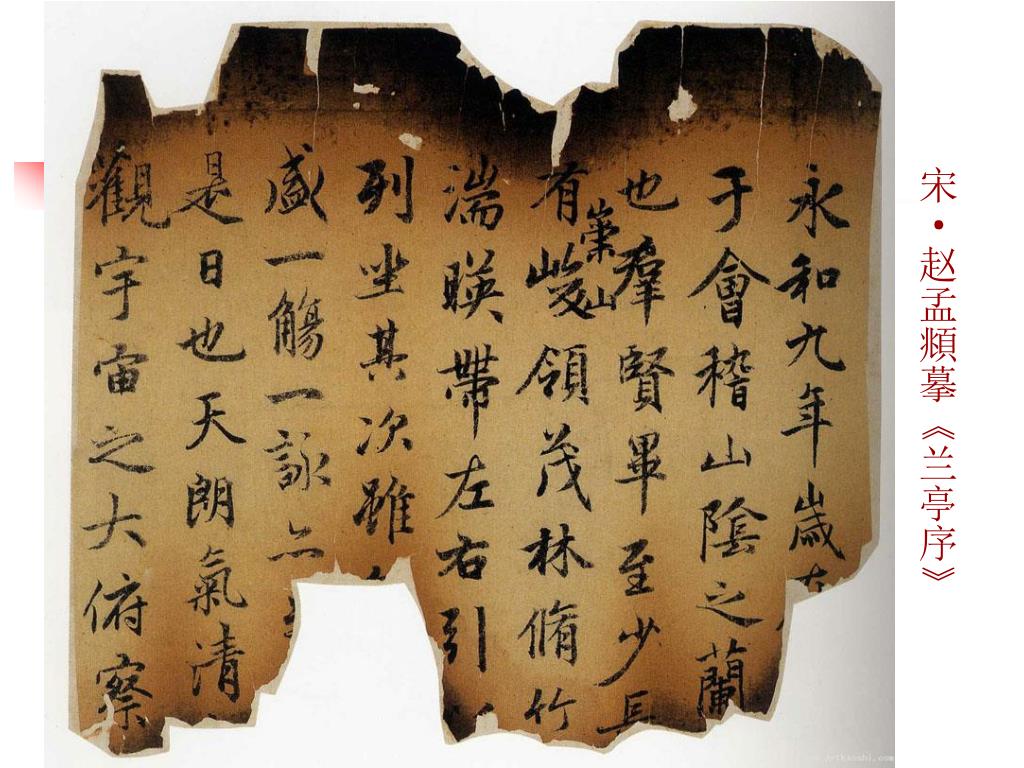 宋·赵孟頫摹《兰亭序》
永和九年歲在
于會稽山陰之蘭
也羣賢畢至少長
崇山
有峻領茂林脩竹
湍暎帶左右引
列坐其次雖
盛一觴一詠亦
是日也天朗氣清
觀宇宙之大俯察